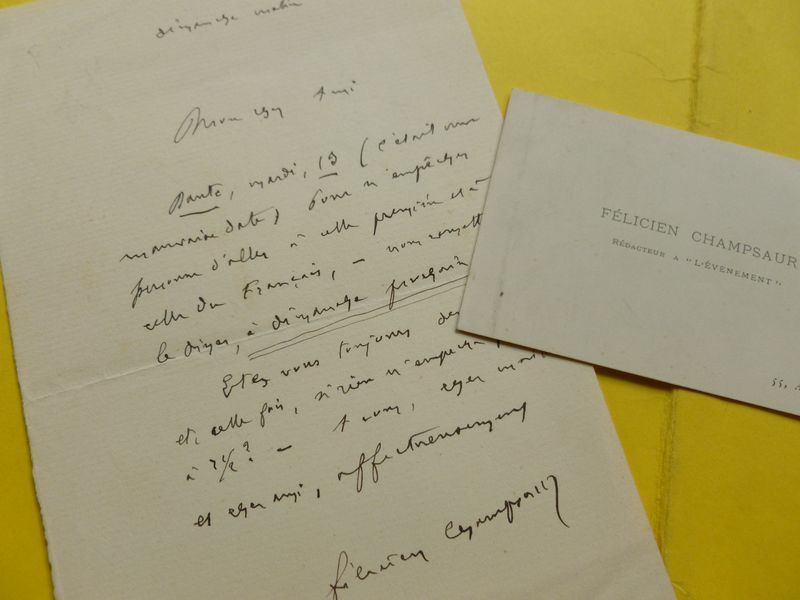 dimanche matin
Mon cher Ami
Dante, mardi, 13 (c'était une
mauvaise date) pour n'empêcher
personne d'aller à cette première et à
celle du Français, – nous
le dîner, à dimanche prochain
Êtes vous toujours
et, cette fois, si rien n'empêche
à 7 1/2 ? – A vous, cher
et cher ami, affectueusement
Félicien Champsaur
FÉLICIEN CHAMPSAUR
RÉDACTEUR A "L'ÉVENEMENT".
55,